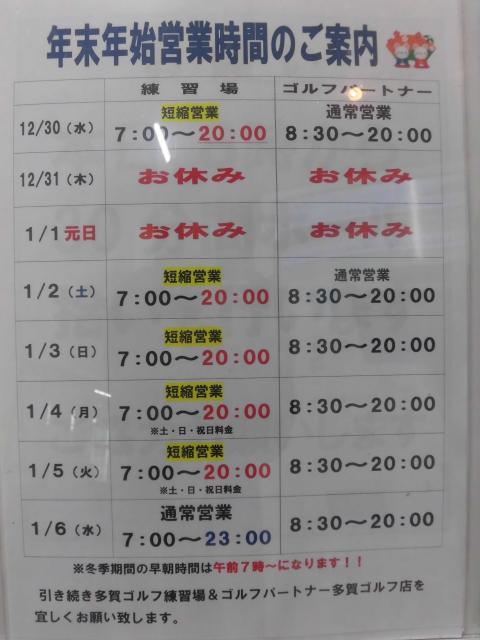 年末年始営業時間のご案内
練習場 ゴルフパートナー
短縮営業 通常営業
12/30(水) 7:00～20:00 8:30～20:00
12/31(木) お休み お休み
1/1元日 お休み お休み
短縮営業 通常営業
1/2(土) 7:00～20:00 8:30～20:00
短縮営業
1/3(日) 7:00～20:00 8:30～20:00
短縮営業
1/4(月) 7:00～20:00 8:30～20:00
※土・日・祝日料金
短縮営業
1/5(火) 7:00～20:00 8:30～20:00
※土・日・祝日料金
通常営業
1/6(水) 7:00～23:00 8:30～20:00
※冬季期間の早朝時間は午前7時～になります!!
引き続き多賀ゴルフ練習場&ゴルフパートナー多賀ゴルフ店を
宜しくお願い致します。